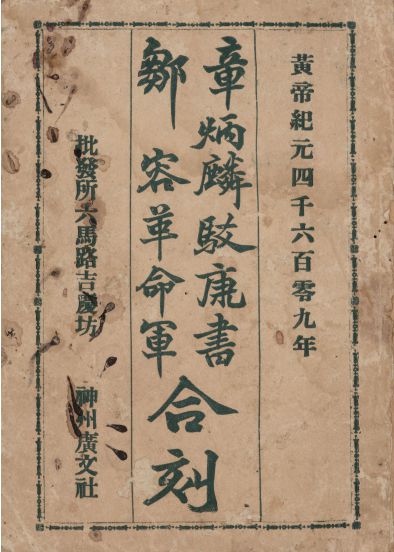 黃帝紀元四千六百零九年
章炳麟駁康書
鄒容革命軍
合刻
批發所六馬路吉慶坊
神州廣文社